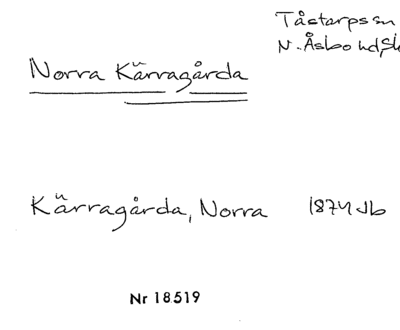 Tåstarps sn
N. Åsbo hd, Sk
Norra Kärragårda
Kärragårda, Norra 1874 Jb
Nr 18519